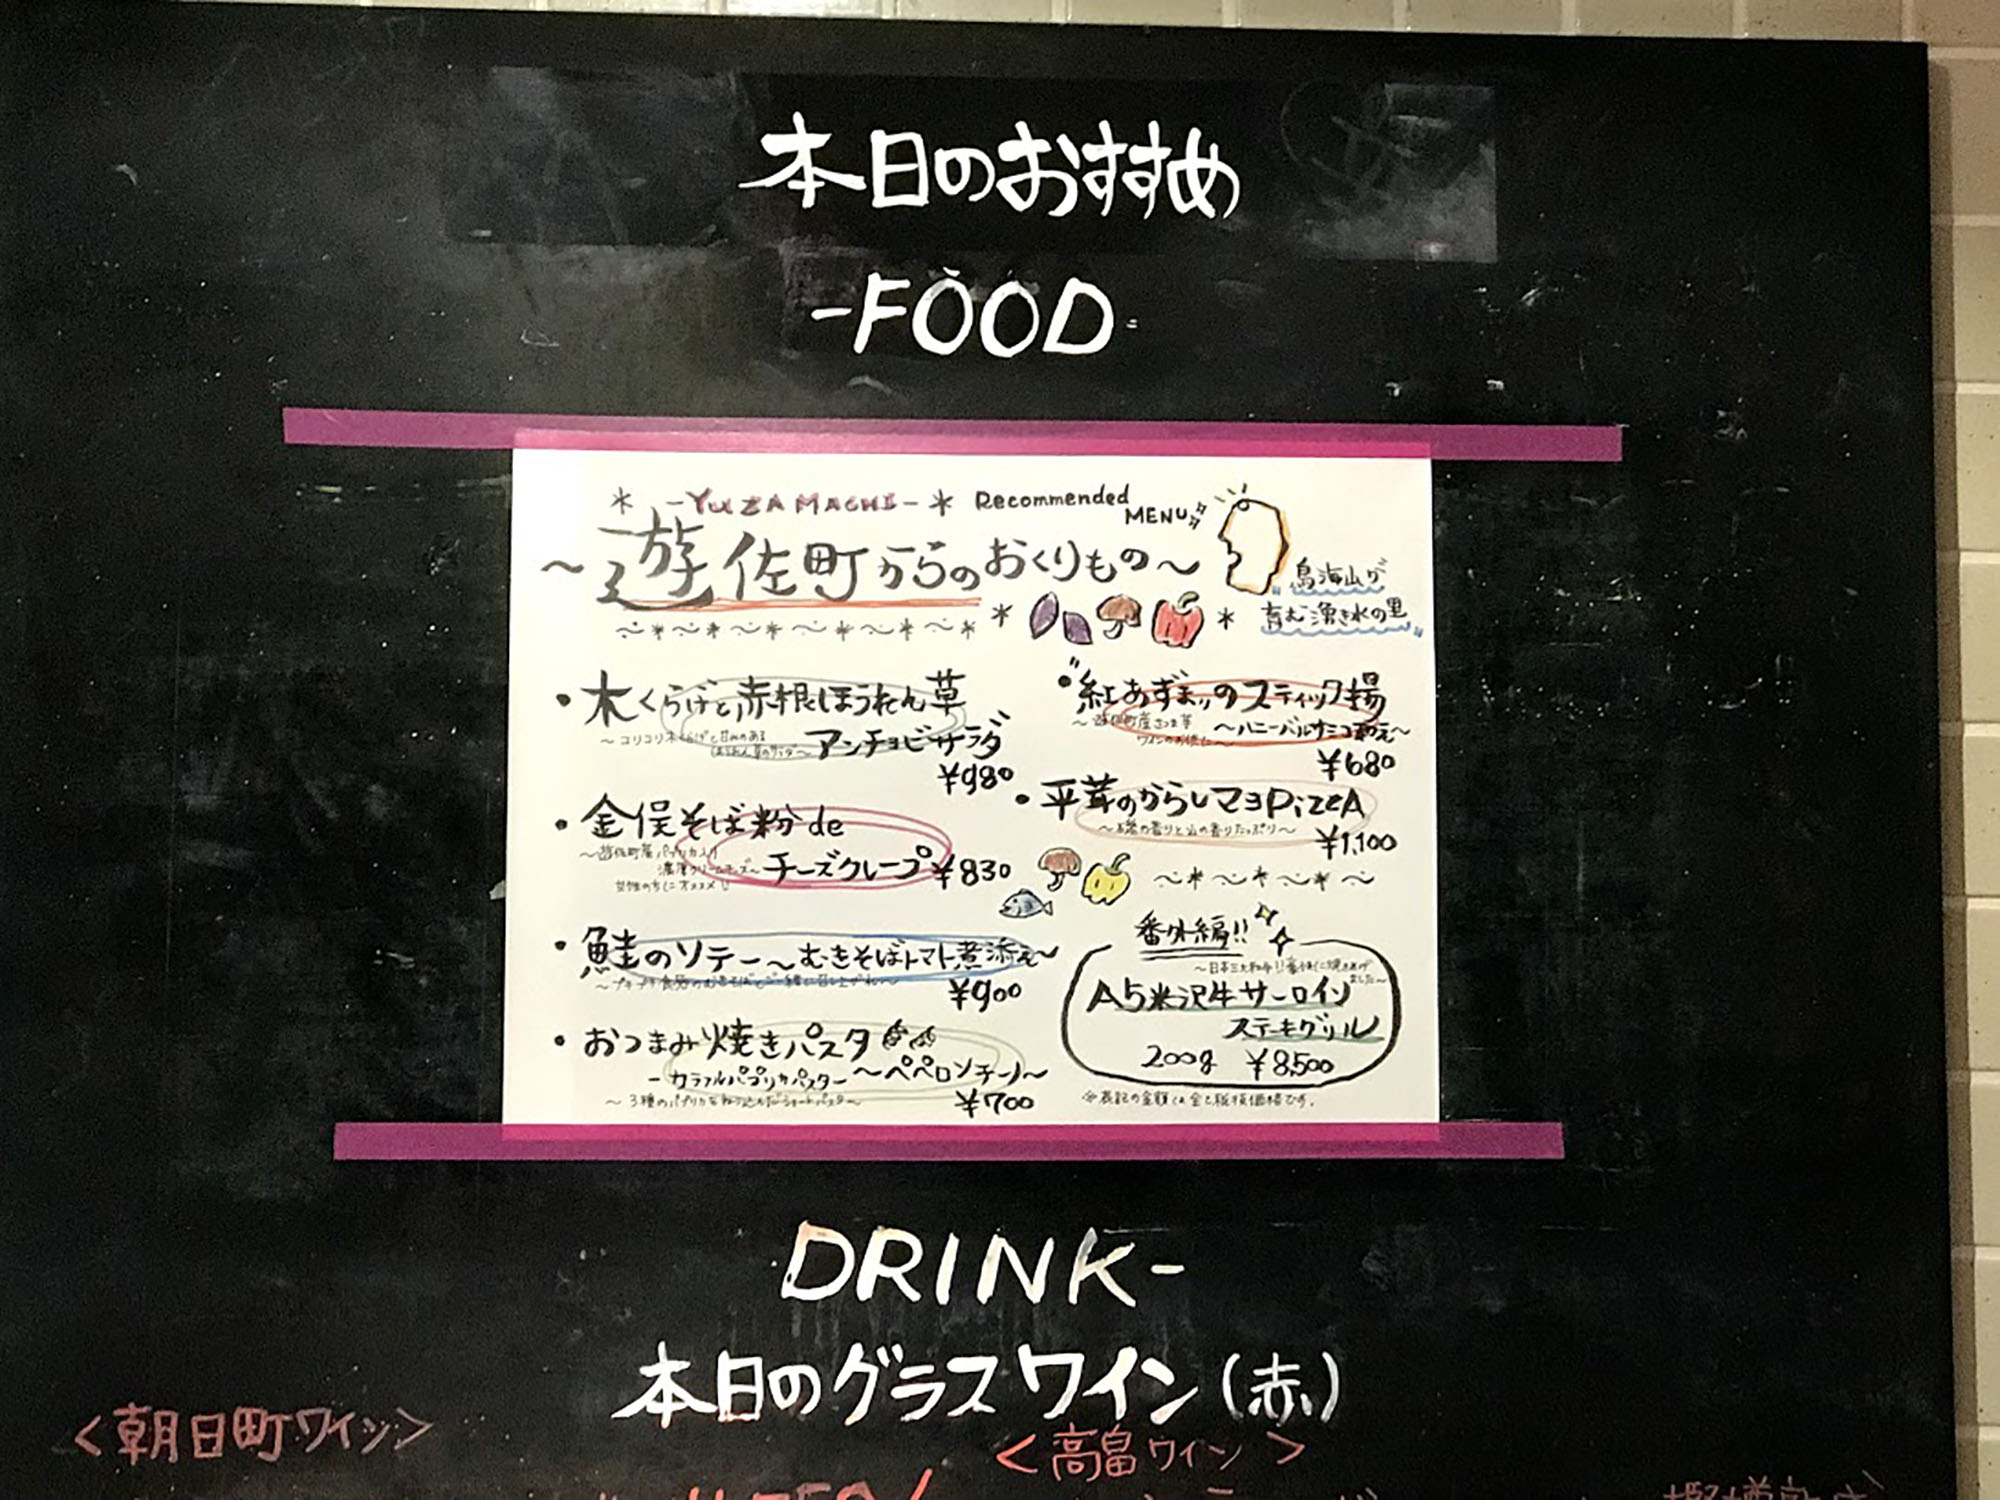 本日のおすすめ
-FOOD-
＊ -YUZAMACHI- ＊ Recommended MENU
〜遊佐町からのおくりもの〜
鳥海山が
育む湧き水の里
・木くらげと赤根ほうれん草
アンチョビサラダ
¥980
・金俣そば粉de
〜遊佐町産パプリカ入り
濃厚クリームチーズ〜
チーズクレープ ¥830
・鮭のソテー〜むきそばトマト煮添え〜
¥900
・おつまみ焼きパスタ
-カラフルパプリカパスター 〜ペペロンチーノ〜
〜3種のパプリカを練り込んだショートパスタ〜
¥700
・"紅あずま"のスティック揚
〜遊佐町産さつま芋
〜ハニーバルサミコ和え〜
¥680
・平茸のからしマヨPizzA
¥1,100
番外編!!
A5米沢牛サーロイン
ステーキグリル
200g ¥8,500
※表記の金額は全て税抜価格です。
DRINK-
本日のグラスワイン(赤)
<朝日町ワイン>
<高畠ワイン>